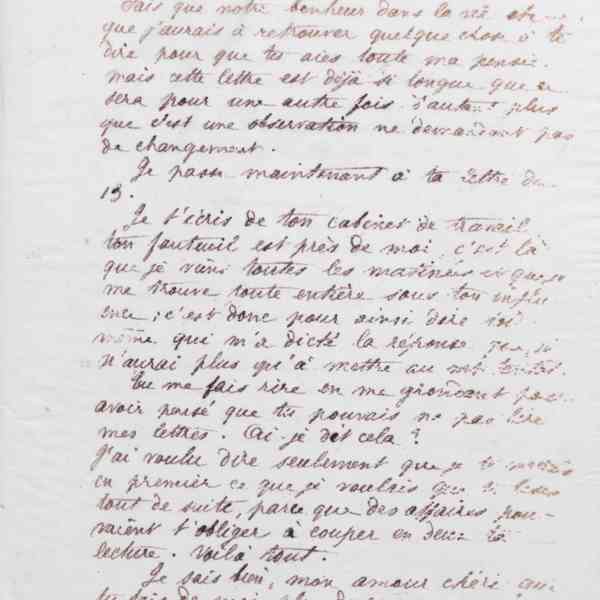 sais que notre bonheur dans la vie
que j'aurais à retrouver quelque chose à te
dire pour que tu aies toute ma pensée.
mais cette lettre est déjà si longue que ce
sera pour une autre fois d'autant plus
que c'est une observation ne demandant pas
de changement.
Je passe maintenant à ta lettre du
13.
Je t'écris de ton cabinet de travail
ton fauteuil est près de moi, c'est là
que je viens toutes les matinées et que je
me trouve toute entière sous ton influ
ence ; c'est donc pour ainsi dire toi
même qui m'a dicté la réponse
n'aurai plus qu'à mettre au
Tu me fais rire en me grondant pour
avoir pensé que tu pouvais ne pas lire
mes lettres. Ai je dit cela ?
J'ai voulu dire seulement que je te
en premier ce que je voulais que tu lises
tout de suite, parce que des affaires pou-
vaient t'obliger à couper en deux ta
lecture. Voilà tout.
Je sais bien, mon amour chéri que
tu fais de moi plus